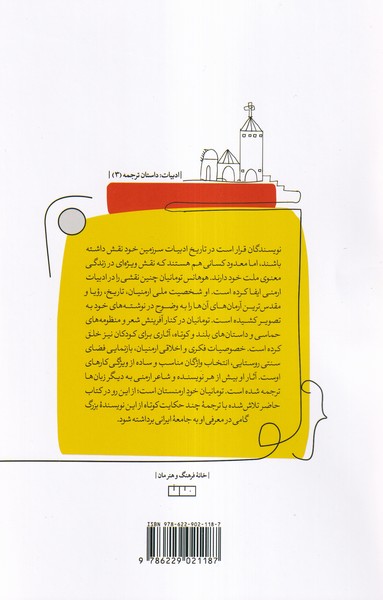 | ادبیات، داستان ترجمه (۳) |
نویسندگان قرار است در تاریخ ادبیات سرزمین خود نقش داشته
باشند، اما معدود کسانی هم هستند که نقش ویژه‌ای در زندگی
معنوی ملت خود دارند. هوهانس تومانیان چنین نقشی را در ادبیات
ارمنی ایفا کرده است. او شخصیت ملی ارمنیان، تاریخ، رؤیا و
مقدس‌ترین آرمان‌های آن‌ها را به وضوح در نوشته‌های خود به
تصویر کشیده است. تومانیان در کنار آفرینش شعر و منظومه‌های
حماسی و داستان‌های بلند و کوتاه، آثاری برای کودکان نیز خلق
کرده است. خصوصیات فکری و اخلاقی ارمنیان، بازنمایی فضای
سنتی روستایی، انتخاب واژگان مناسب و ساده از ویژگی کارهای
اوست. آثار او بیش از هر نویسنده و شاعر ارمنی به دیگر زبان‌ها
ترجمه شده است. تومانیان خودِ ارمنستان است؛ از این رو در کتاب
حاضر تلاش شده با ترجمهٔ چند حکایت کوتاه از این نویسندهٔ بزرگ
گامی در معرفی او به جامعهٔ ایرانی برداشته شود.
| خانهٔ فرهنگ و هنر مان |
ISBN 978-622-902-118-7
9 786229 021187